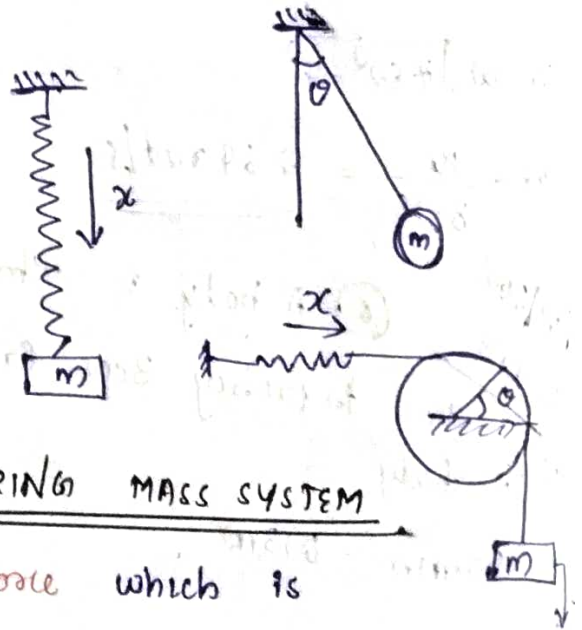 θ
x
m
x
m
θ
RING MASS SYSTEM
m
which is